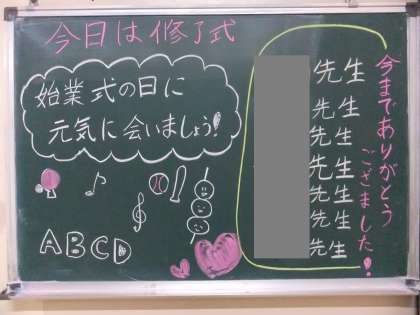 今日は修了式
始業式の日に
元気に会いましょう!
ABCD
今までありがとう
ございました!
先生
先生
先生
先生
先生
先生
先生